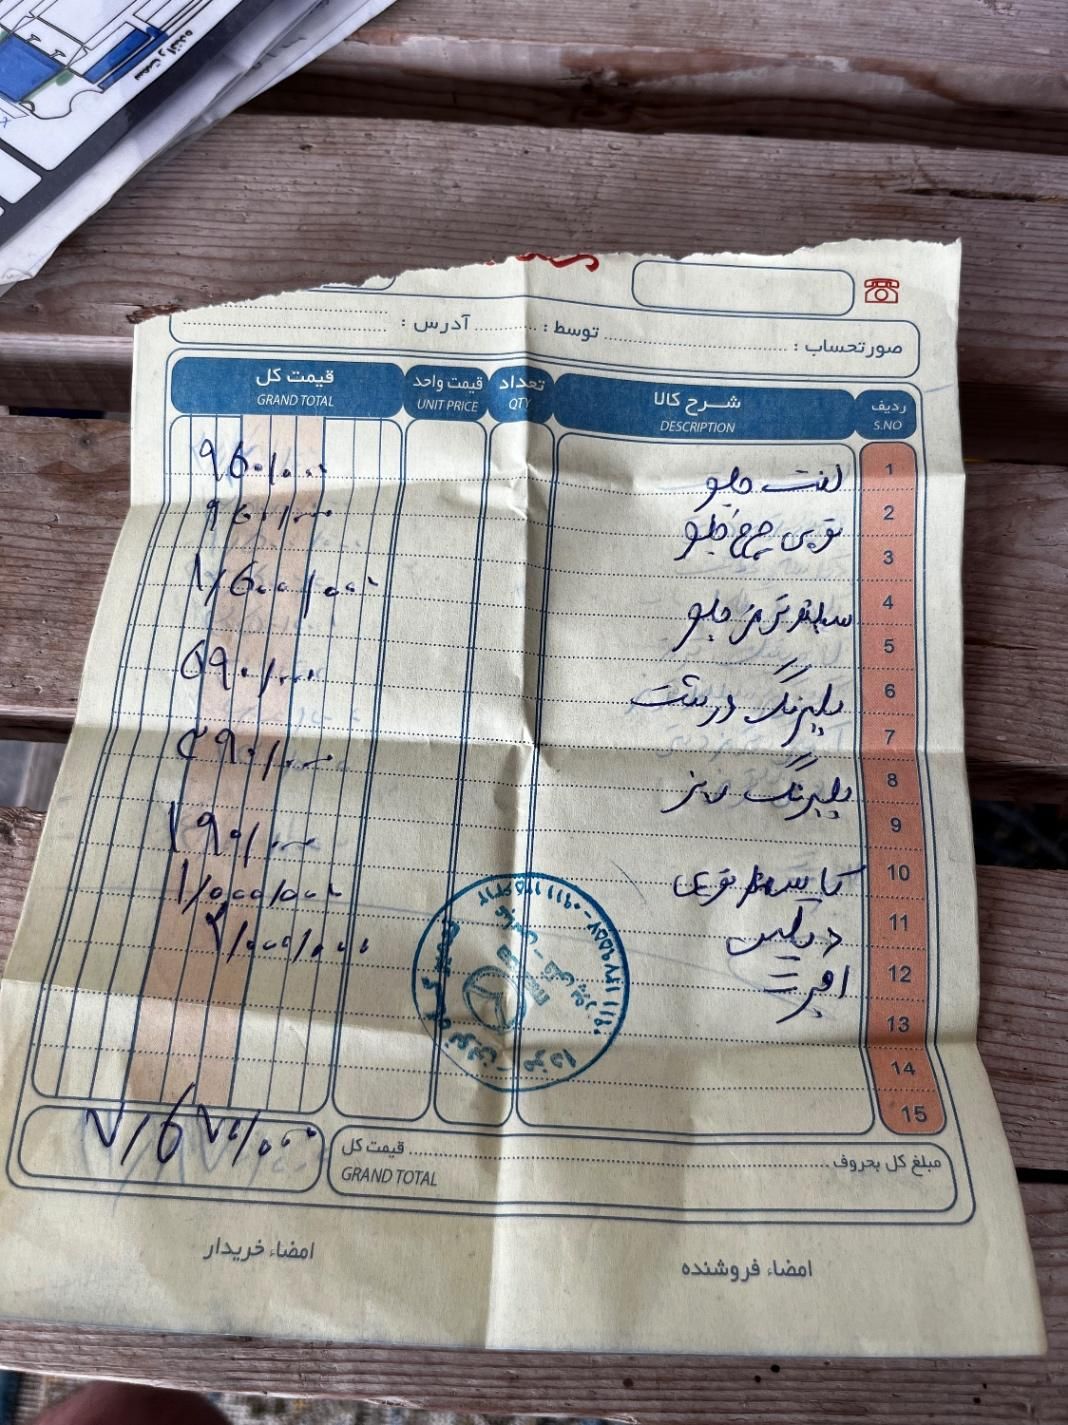 سمت راننده
صورتحساب : توسط : آدرس :
ردیف شرح کالا تعداد قیمت واحد قیمت کل
S.NO DESCRIPTION QTY UNIT PRICE GRAND TOTAL
1 لنت جلو ۹۵۰/۰۰۰
2 توپی چرخ جلو ۹۵۰/۰۰۰
3
4 سیلندر ترمز جلو ۱/۵۰۰/۰۰۰
5
6 بلبرینگ درشت ۵۹۰/۰۰۰
7
8 بلبرینگ ریز ۴۹۰/۰۰۰
9
10 کاسه نمد توپی ۱۹۰/۰۰۰
11 ۱/۰۰۰/۰۰۰
12 اجرت ۲/۰۰۰/۰۰۰
13
14
15
مبلغ کل بحروف قیمت کل
GRAND TOTAL
۷/۶۷۰/۰۰۰
امضاء فروشنده امضاء خریدار